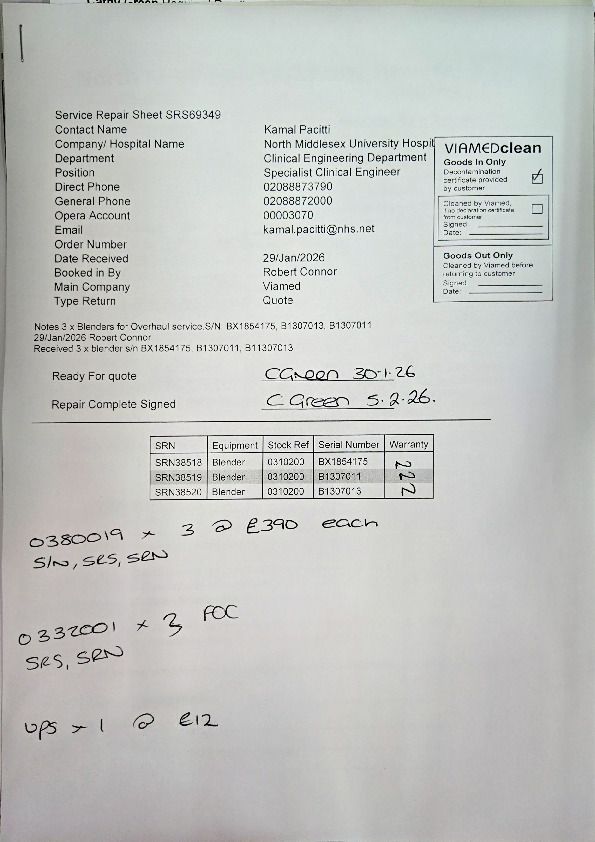 Service Repair Sheet SRS69349
Contact Name Kamal Pacitti
Company/ Hospital Name North Middlesex University Hospit
Department Clinical Engineering Department
Position Specialist Clinical Engineer
Direct Phone 02088873790
General Phone 02088872000
Opera Account 00003070
Email kamal.pacitti@nhs.net
Order Number
Date Received 29/Jan/2026
Booked in By Robert Connor
Main Company Viamed
Type Return Quote
VIAMEDclean
Goods In Only
Decontamination
certificate provided
by customer
Cleaned by Viamed,
if no declaration certificate
from customer
Signed
Date:
Goods Out Only
Cleaned by Viamed before
returning to customer
Signed
Date:
Notes 3 x Blenders for Overhaul service.S/N. BX1854175, B1307013, B1307011
29/Jan/2026 Robert Connor
Received 3 x blender s/n BX1854175, B1307011, B11307013
Ready For quote CGreen 30.1.26
Repair Complete Signed C Green 5.2.26.
SRN Equipment Stock Ref Serial Number Warranty
SRN38518 Blender 0310200 BX1854175 N
SRN38519 Blender 0310200 B1307011 N
SRN38520 Blender 0310200 B1307013 N
0380019 x 3 @ £390 each
S/N, SRS, SRN
0332001 x 3 FOC
SRS, SRN
UPS x 1 @ £12